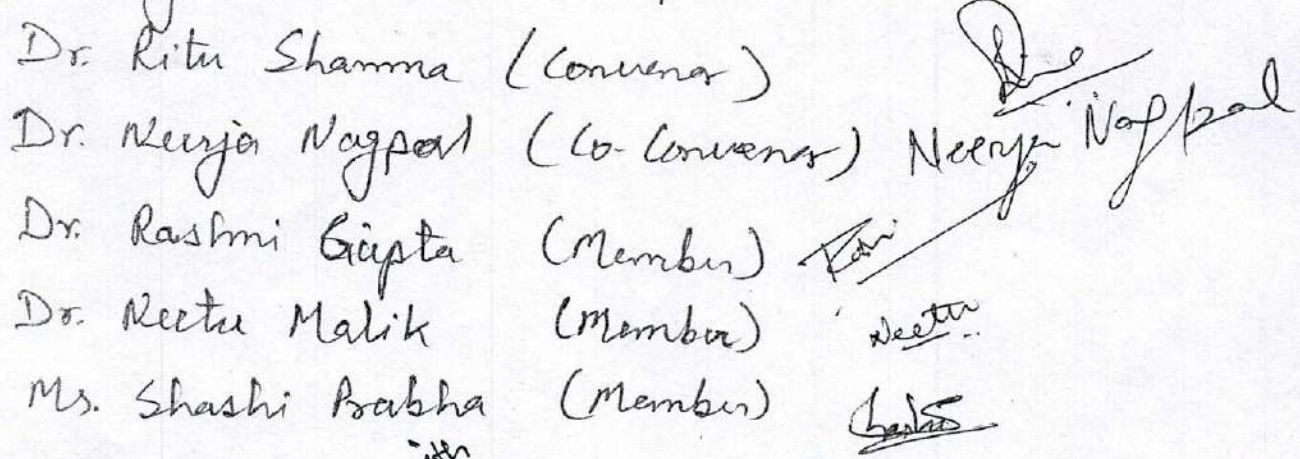 Dr. Ritu Sharma (Convenor)
Dr. Neerja Nagpal (Co-Convenor) Neerja Nagpal
Dr. Rashmi Gupta (Member)
Dr. Neetu Malik (Member) Neetu
Ms. Shashi Prabha (Member) Shashi